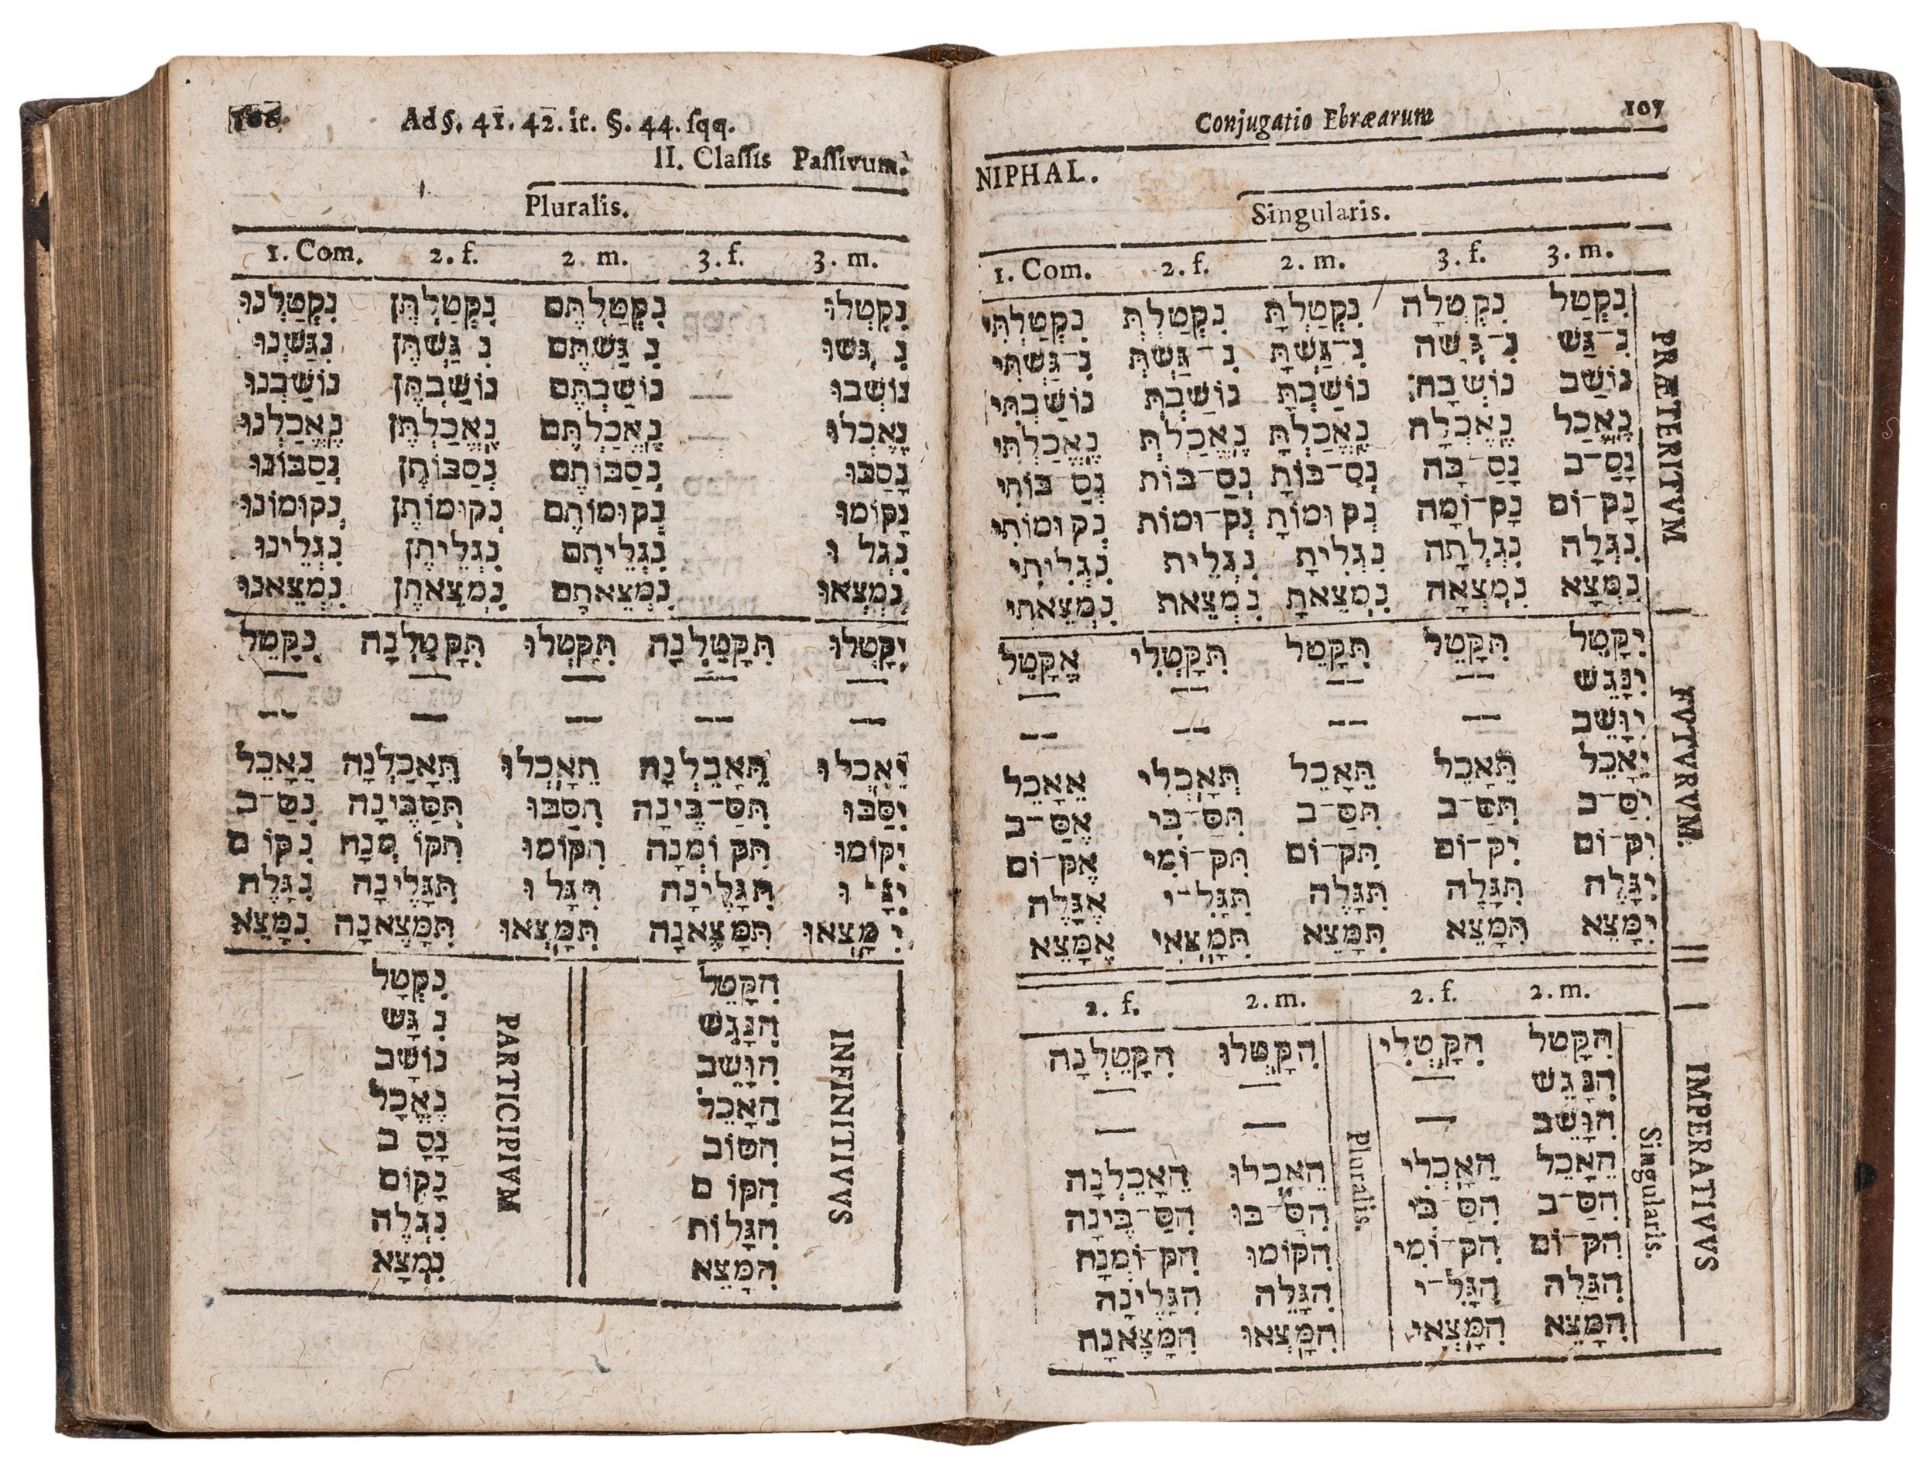 Ad §. 41. 42. it. §. 44. sqq.
II. Classis Passivum.
Pluralis.
1. Com. 2. f. 2. m. 3. f. 3. m.
נִקְטַלְנוּ נִקְטַלְתֶּן נִקְטַלְתֶּם נִקְטְלוּ
נִגַּשְׁנוּ נִ גַּשְׁתֶּן נִ גַּשְׁתֶּם נִ גְּשׁוּ
נוֹשַׁבְנוּ נוֹשַׁבְתֶּן נוֹשַׁבְתֶּם — נוֹשְׁבוּ
נֶאֱכַלְנוּ נֶאֱכַלְתֶּן נֶאֱכַלְתֶּם — נֶאֶכְלוּ
נְסַבּוֹנוּ נְסַבּוֹתֶן נְסַבּוֹתֶם נָסַבּוּ
נְקוּמוֹנוּ נְקוּמוֹתֶן נְקוּמוֹתֶם נָקוֹמוּ
נִגְלֵינוּ נִגְלֵיתֶן נִגְלֵיתֶם נִגְל וּ
נִמְצֵאנוּ נִמְצֵאתֶן נִמְצֵאתֶם נִמְצְאוּ
נִקָּטֵל תִּקָּטַלְנָה תִּקָּטְלוּ תִּקָּטַלְנָה יִקָּטְלוּ
— — — — —
— — — — —
נֵאָכֵל תֵּאָכַלְנָה תֵאָכְלוּ תֵּאָכֵלְנָה יֵאָכְלוּ
נִסַּ־ב תִּסַּבֶּינָה תִסַּבּוּ תִּסַּ־בֶּינָה יִסַּבּוּ
נִקּוֹ ם תִקּוֹ מְנָה תִּקּוֹמוּ תִּקּוֹמְנָה יִקּוֹמוּ
נִגָּלֶה תִּגָּלֶינָה תִּגָּל וּ תִּגָּלֶינָה יִגָּ וּ
נִמָּצֵא תִּמָּצֶאנָה תִּמָּצְאוּ תִּמָּצֶאנָה יִ מָּצְאוּ
INFINITIVUS
הִקָּטֵל
הִנָּגֵשׁ
הִוָּשֵׁב
הֵאָכֵל
הִסּוֹב
הִקּוֹ ם
הִגָּלוֹת
הִמָּצֵא
PARTICIPIVM
נִקְטָל
נִ גָּשׁ
נוֹשָׁב
נֶאֱכָל
נָסָ ב
נָקוֹם
נִגְלֶה
נִמְצָא
Conjugatio Ebræarum 107
NIPHAL.
Singularis.
1. Com. 2. f. 2. m. 3. f. 3. m.
PRÆTERITVM
נִקְטַלְתִּי נִקְטַלְתְּ נִקְטַלְתָּ נִקְטְלָה נִקְטַל
נִ־גַּשְׁתִּי נִ־גַּשְׁתְּ נִ־גַּשְׁתָּ נִ־גְּשָׁה נִ־גַּשׁ
נוֹשַׁבְתִּי נוֹשַׁבְתְּ נוֹשַׁבְתָּ נוֹשְׁבָה נוֹשַׁב
נֶאֱכַלְתִּי נֶאֱכַלְתְּ נֶאֱכַלְתָּ נֶאֶכְלָה נֶאֱכַל
נְסַ־בּוֹתִי נְסַ־בּוֹת נְסַ־בּוֹתָ נָסַ־בָּה נָסַ־ב
נְקוּמוֹתִי נְק־וּמוֹת נְקוּמוֹתָ נָק־וֹמָה נָק־וֹם
נִגְלֵיתִי נִגְלֵית נִגְלֵיתָ נִגְלְתָה נִגְלָה
נִמְצֵאתִי נִמְצֵאת נִמְצֵאתָ נִמְצְאָה נִמְצָא
FVTVRVM.
אֶקָּטֵל תִּקָּטְלִי תִּקָּטֵל תִּקָּטֵל יִקָּטֵל
— — — — יִנָּגֵשׁ
— — — — יִוָּשֵׁב
אֵאָכֵל תֵּאָכְלִי תֵּאָכֵל תֵּאָכֵל יֵאָכֵל
אֶסַּ־ב תִּסַּ־בִּי תִּסַּ־ב תִּסַּ־ב יִסַּ־ב
אֶקּ־וֹם תִּקּ־וֹמִי תִּקּ־וֹם יִקּ־וֹם יִקּ־וֹם
אֶגָּלֶה תִּגָּלִ־י תִּגָּלֶה תִּגָּלֶה יִגָּלֶה
אֶמָּצֵא תִּמָּצְאִי תִּמָּצֵא תִּמָּצֵא יִמָּצֵא
2. f. 2. m. 2. f. 2. m.
IMPERATIVVS
Singularis.
Pluralis.
הִקָּטֵלְנָה הִקָּטְלוּ הִקָּטְלִי הִקָּטֵל
— — — הִנָּגֵשׁ
— — — הִוָּשֵׁב
הֵאָכֵלְנָה הֵאָכְלוּ הֵאָכְלִי הֵאָכֵל
הִסַּ־בֶּינָה הִסַּ־בּוּ הִסַּ־בִּי הִסַּ־ב
הִקּ־וֹמְנָה הִקּוֹמוּ הִקּ־וֹמִי הִקּ־וֹם
הִגָּלֶינָה הִגָּלֵה הִגָּלִ־י הִגָּלֵה
הִמָּצֶאנָה הִמָּצְאוּ הִמָּצְאִי הִמָּצֵא